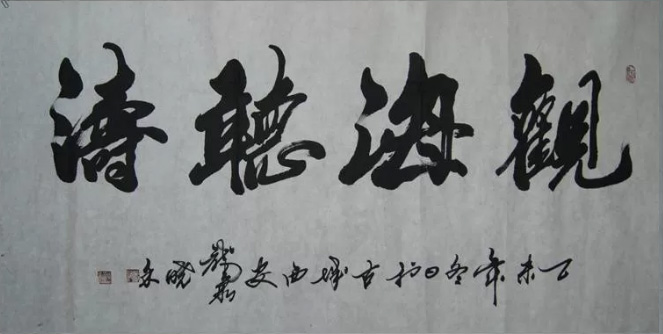 觀海聽濤
丁未年冬日於古城西安 曉